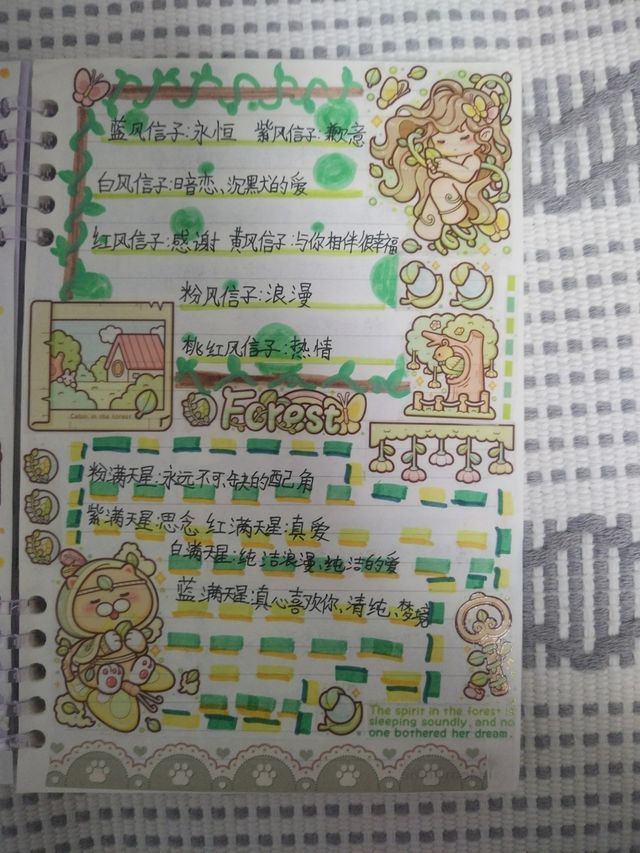 蓝风信子:永恒 紫风信子:歉意
白风信子:暗恋、沉默的爱
红风信子:感谢 黄风信子:与你相伴很幸福
粉风信子:浪漫
桃红风信子:热情
Cabin in the forest
Forest
粉满天星:永远不可缺的配角
紫满天星:思念 红满天星:真爱
白满天星:纯洁浪漫、纯洁的爱
蓝满天星:真心喜欢你,清纯、梦境
The spirit in the forest is
sleeping soundly, and no
one bothered her dream.